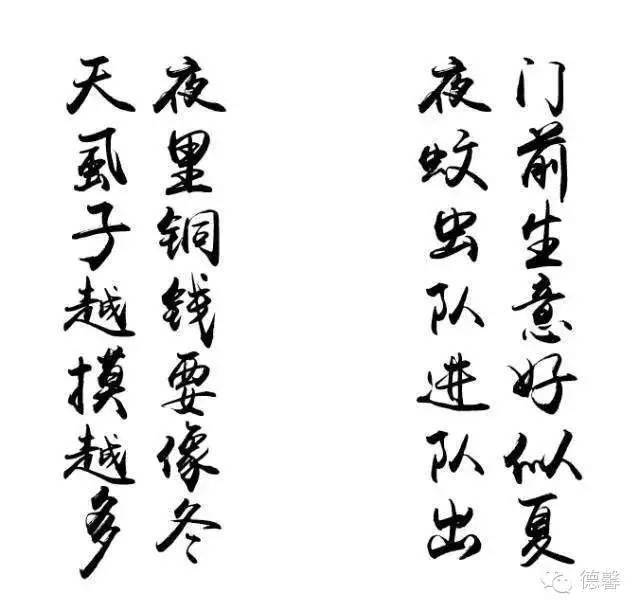 门前生意好似夏
夜蚊虫队进队出
夜里铜钱要像冬
天虱子越摸越多
德馨